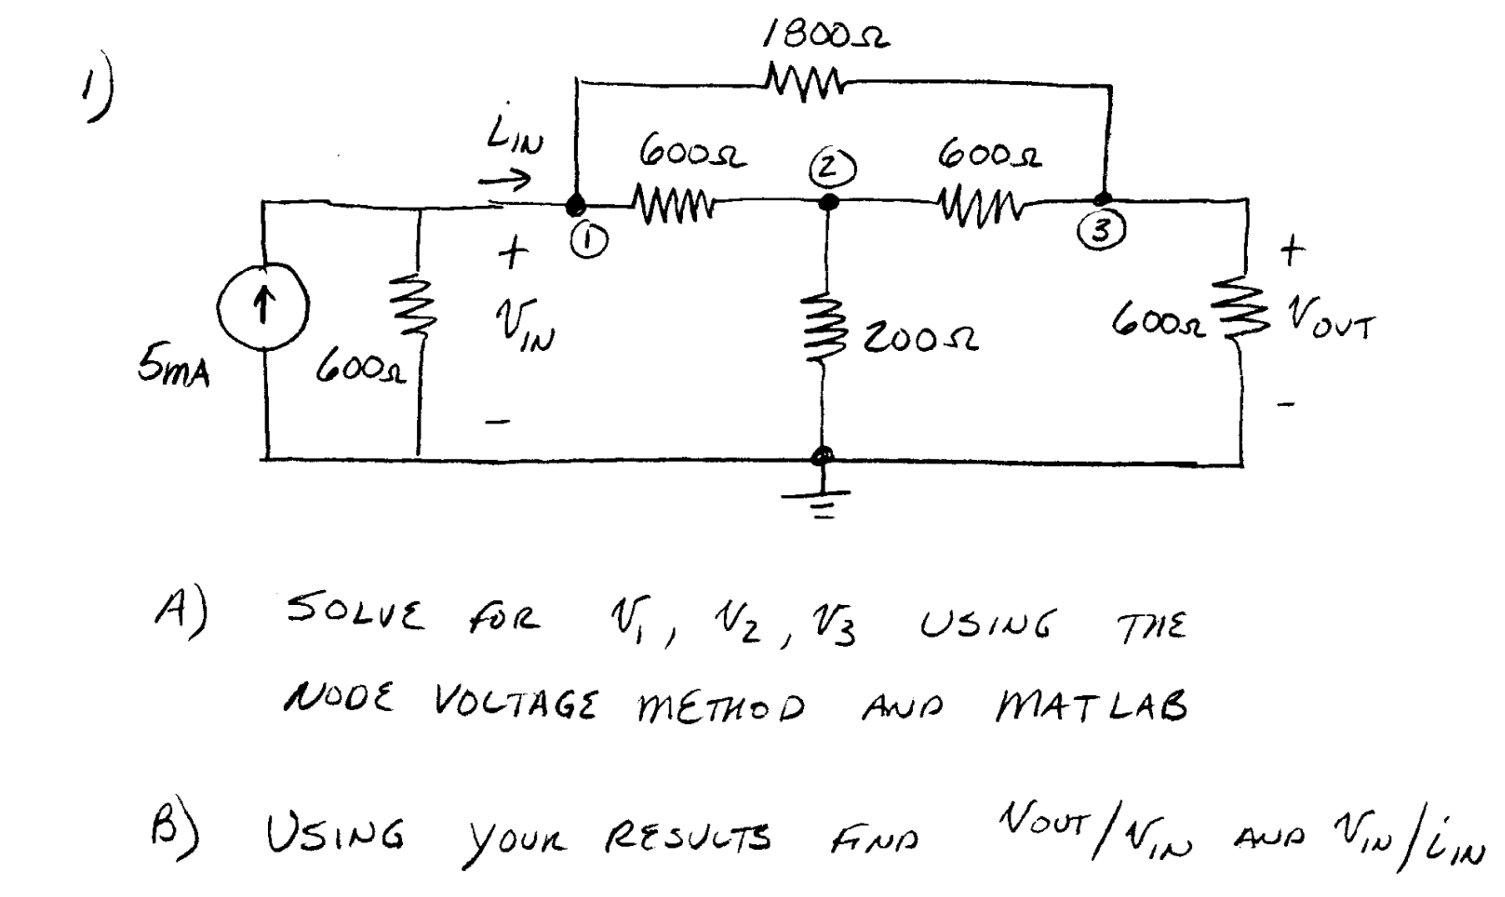 1)
1800Ω
iIN
600Ω
2
600Ω
1
3
+
VIN
-
5mA
600Ω
200Ω
600Ω
+
VOUT
-
A) SOLVE FOR V1, V2, V3 USING THE
NODE VOLTAGE METHOD AND MATLAB
B) USING YOUR RESULTS FIND VOUT/VIN AND VIN/iIN